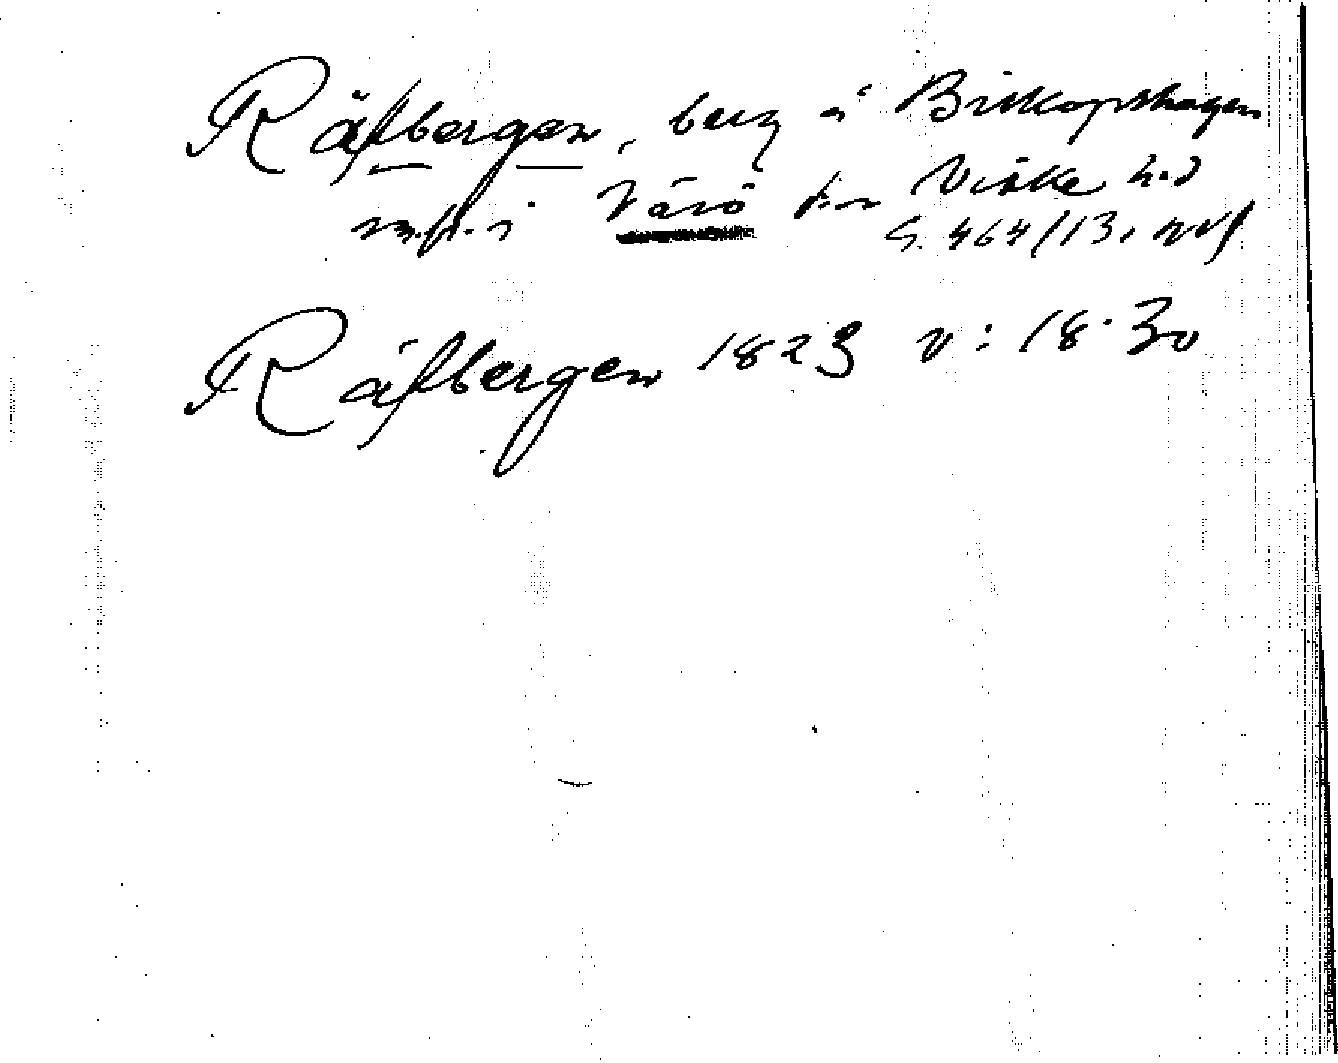 Räfbergen, berg å Biskopshagen
m.fl. i Värö sn Viske hd
G. 464/13.
Räfbergen 1823 v: 18.30